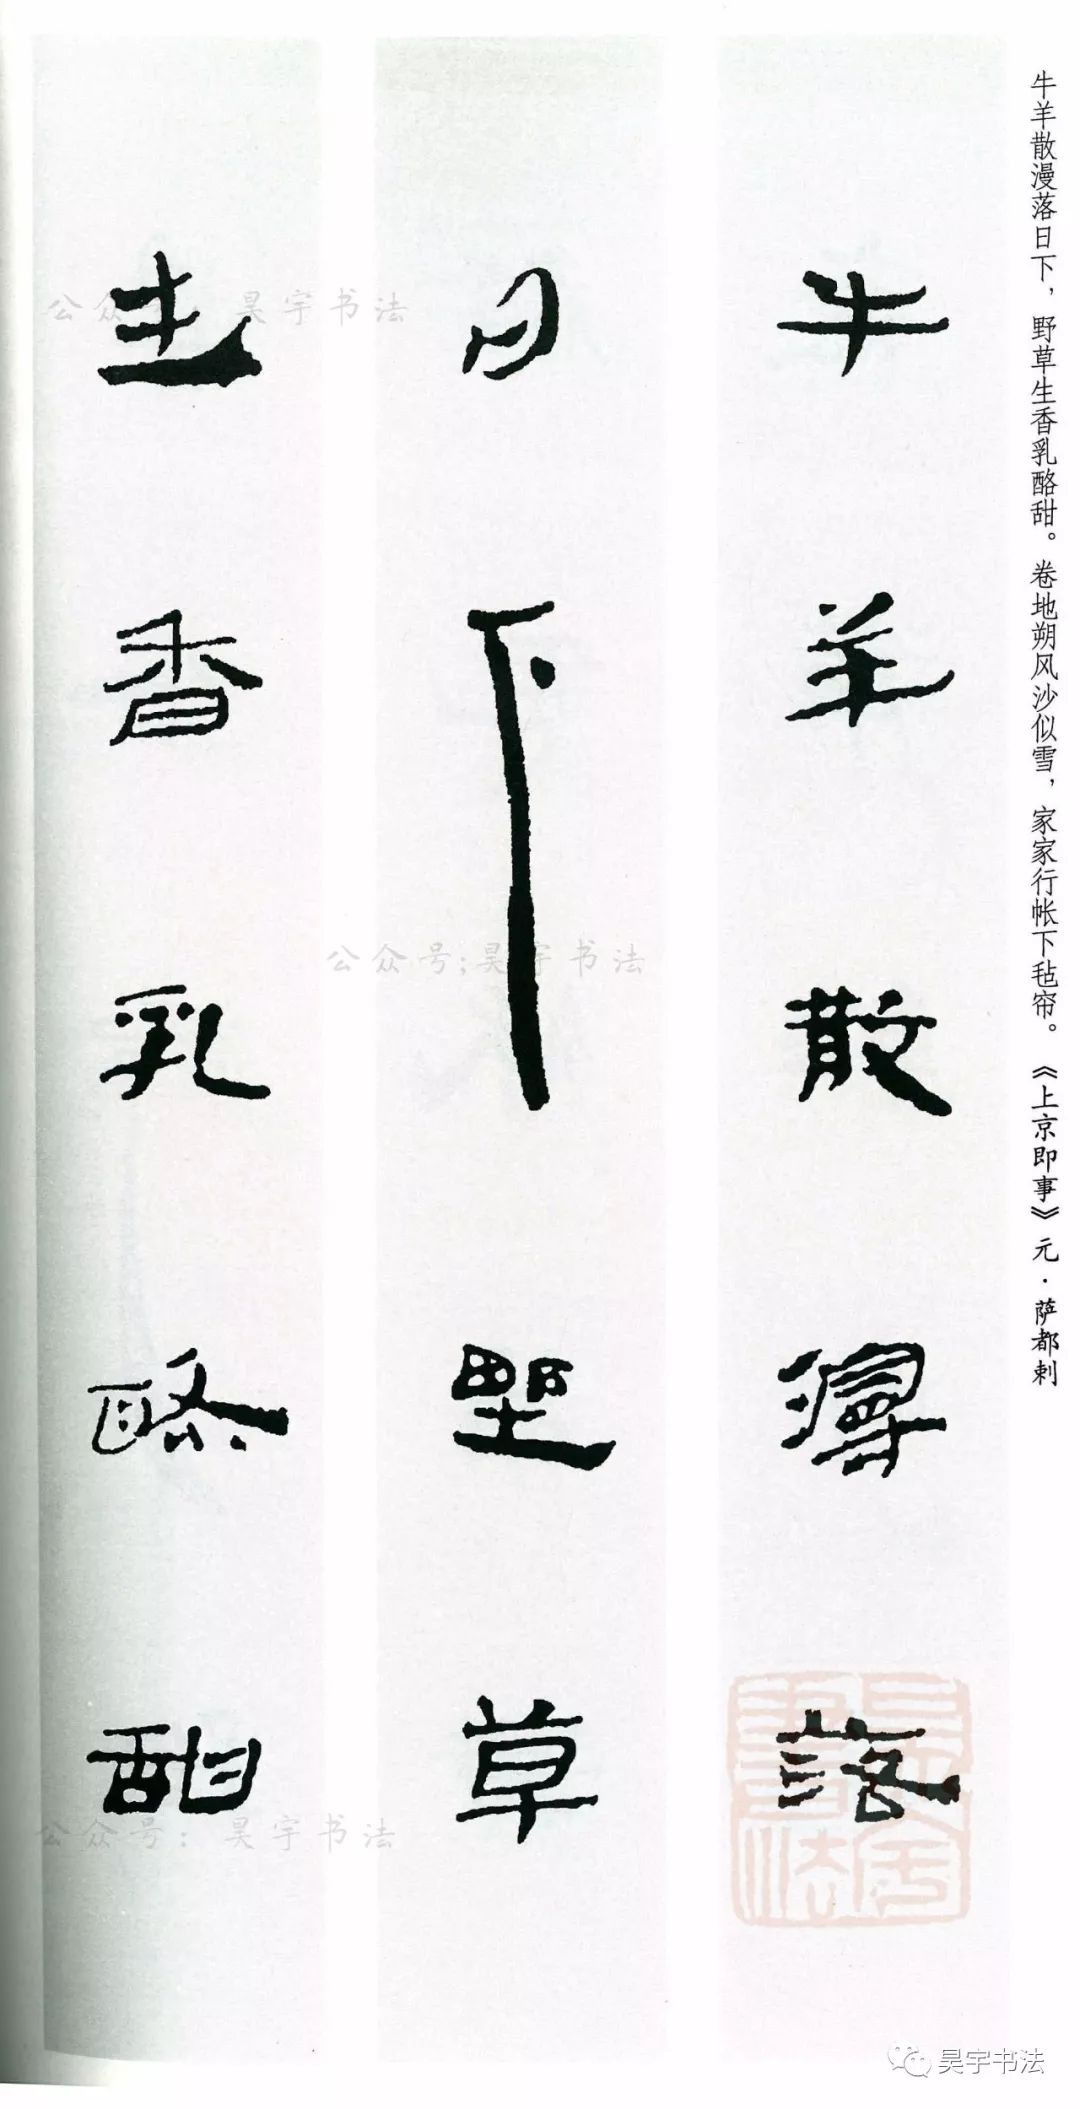 牛羊散漫落日下，野草生香乳酪甜。卷地朔风沙似雪，家家行帐下毡帘。《上京即事》元·萨都剌
牛羊散漫落
日下野草
生香乳酪甜
公众号：昊宇书法
公众号；昊宇书法
公众号：昊宇书法
昊宇书法
昊宇书法